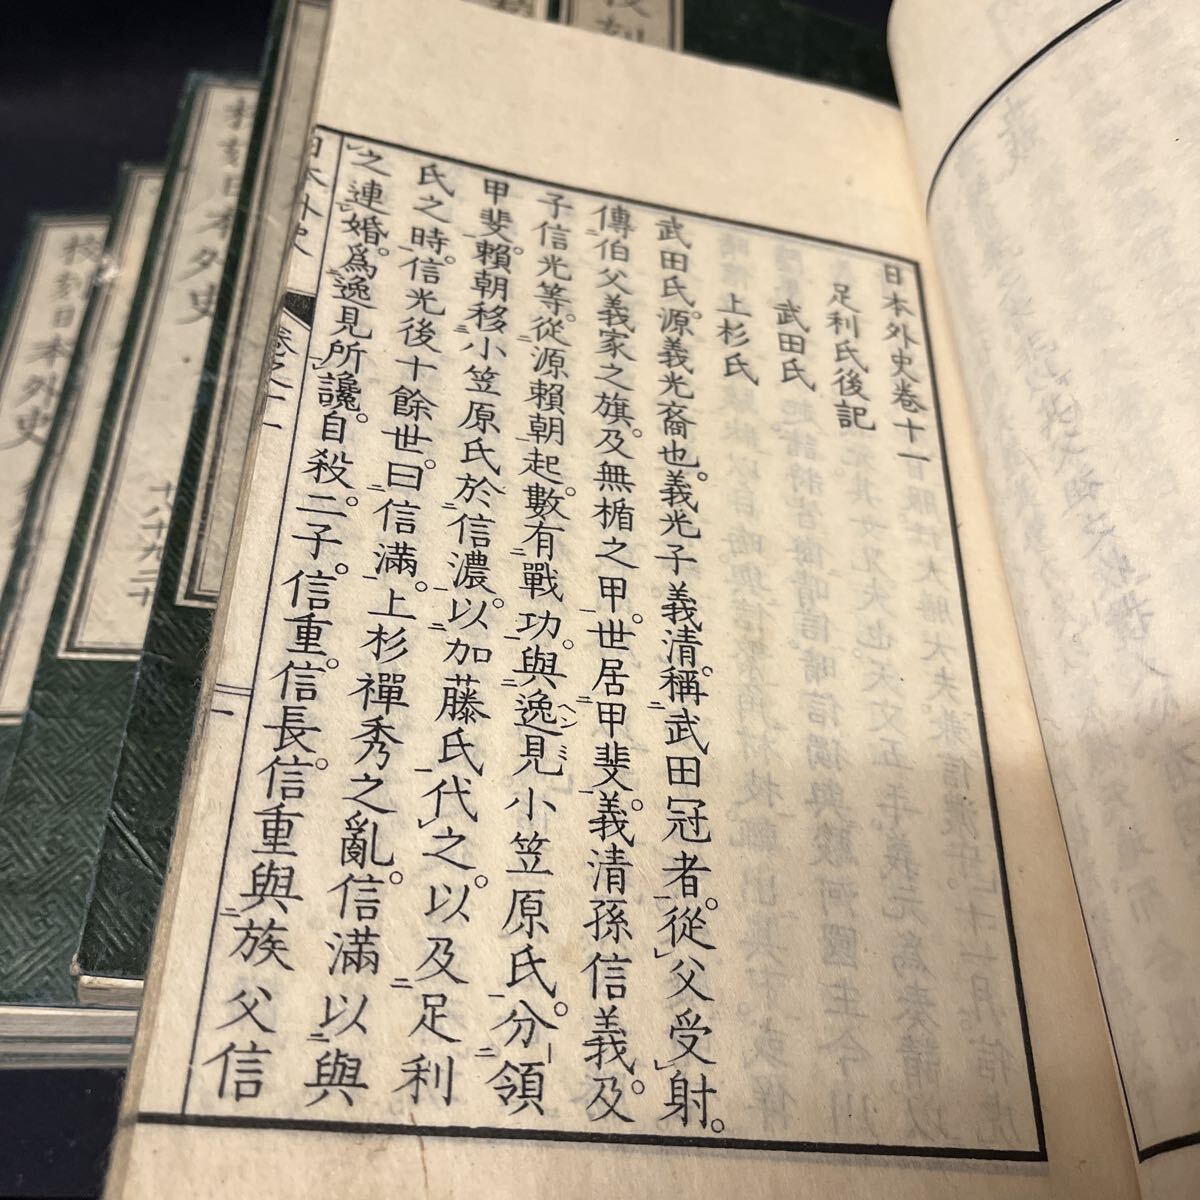 日本外史卷十一
足利氏後記
武田氏
上杉氏
武田氏。源義光裔也。義光子義清。稱武田冠者。從父受射。
傳伯父義家之旗。及無楯之甲。世居甲斐。義清孫信義。及
子信光等。從源賴朝起。數有戰功。與逸見小笠原氏。分領
甲斐。賴朝移小笠原氏於信濃。以加藤氏代之。以及足利
氏之時。信光後十餘世。曰信滿。上杉禪秀之亂。信滿以與
之連婚。爲逸見所讒。自殺。二子。信重。信長。信重與族父信
日本外史
卷之十一
一
校刻日本外史
十八十九二十
校刻日本外史
校刻